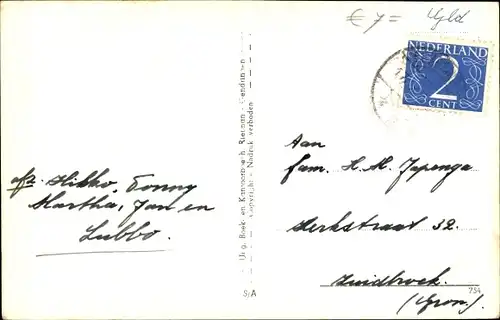 € 7 =
NEDERLAND
2
CENT
Aan
fam. H. M. Japenga
Kerkstraat 32.
Zuidbroek.
(Gron.)
afz. Hikko, Tonny
Martha, Jan en
Lubbo.
Uitg. Boek- en Kantoorboekh. Rietman - Gendringen
Copyright - Nadruk verboden
S/A
754